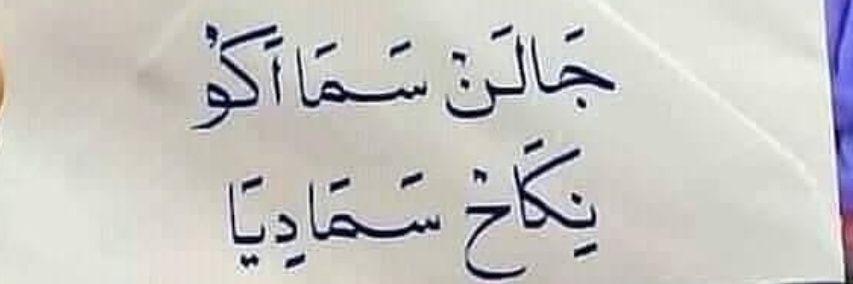 جَالَنْ سَمَا اَكُوْ
نِكَاحْ سَمَا دِيَا